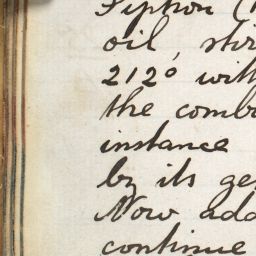 Siphon (
oil, stir
212° with
the comb
instance
by its ge
Now add
continue